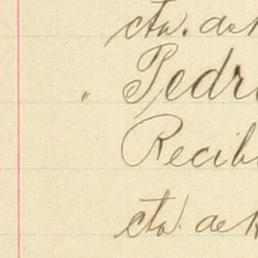 cta. de
" Pedr
Recib
cta. de